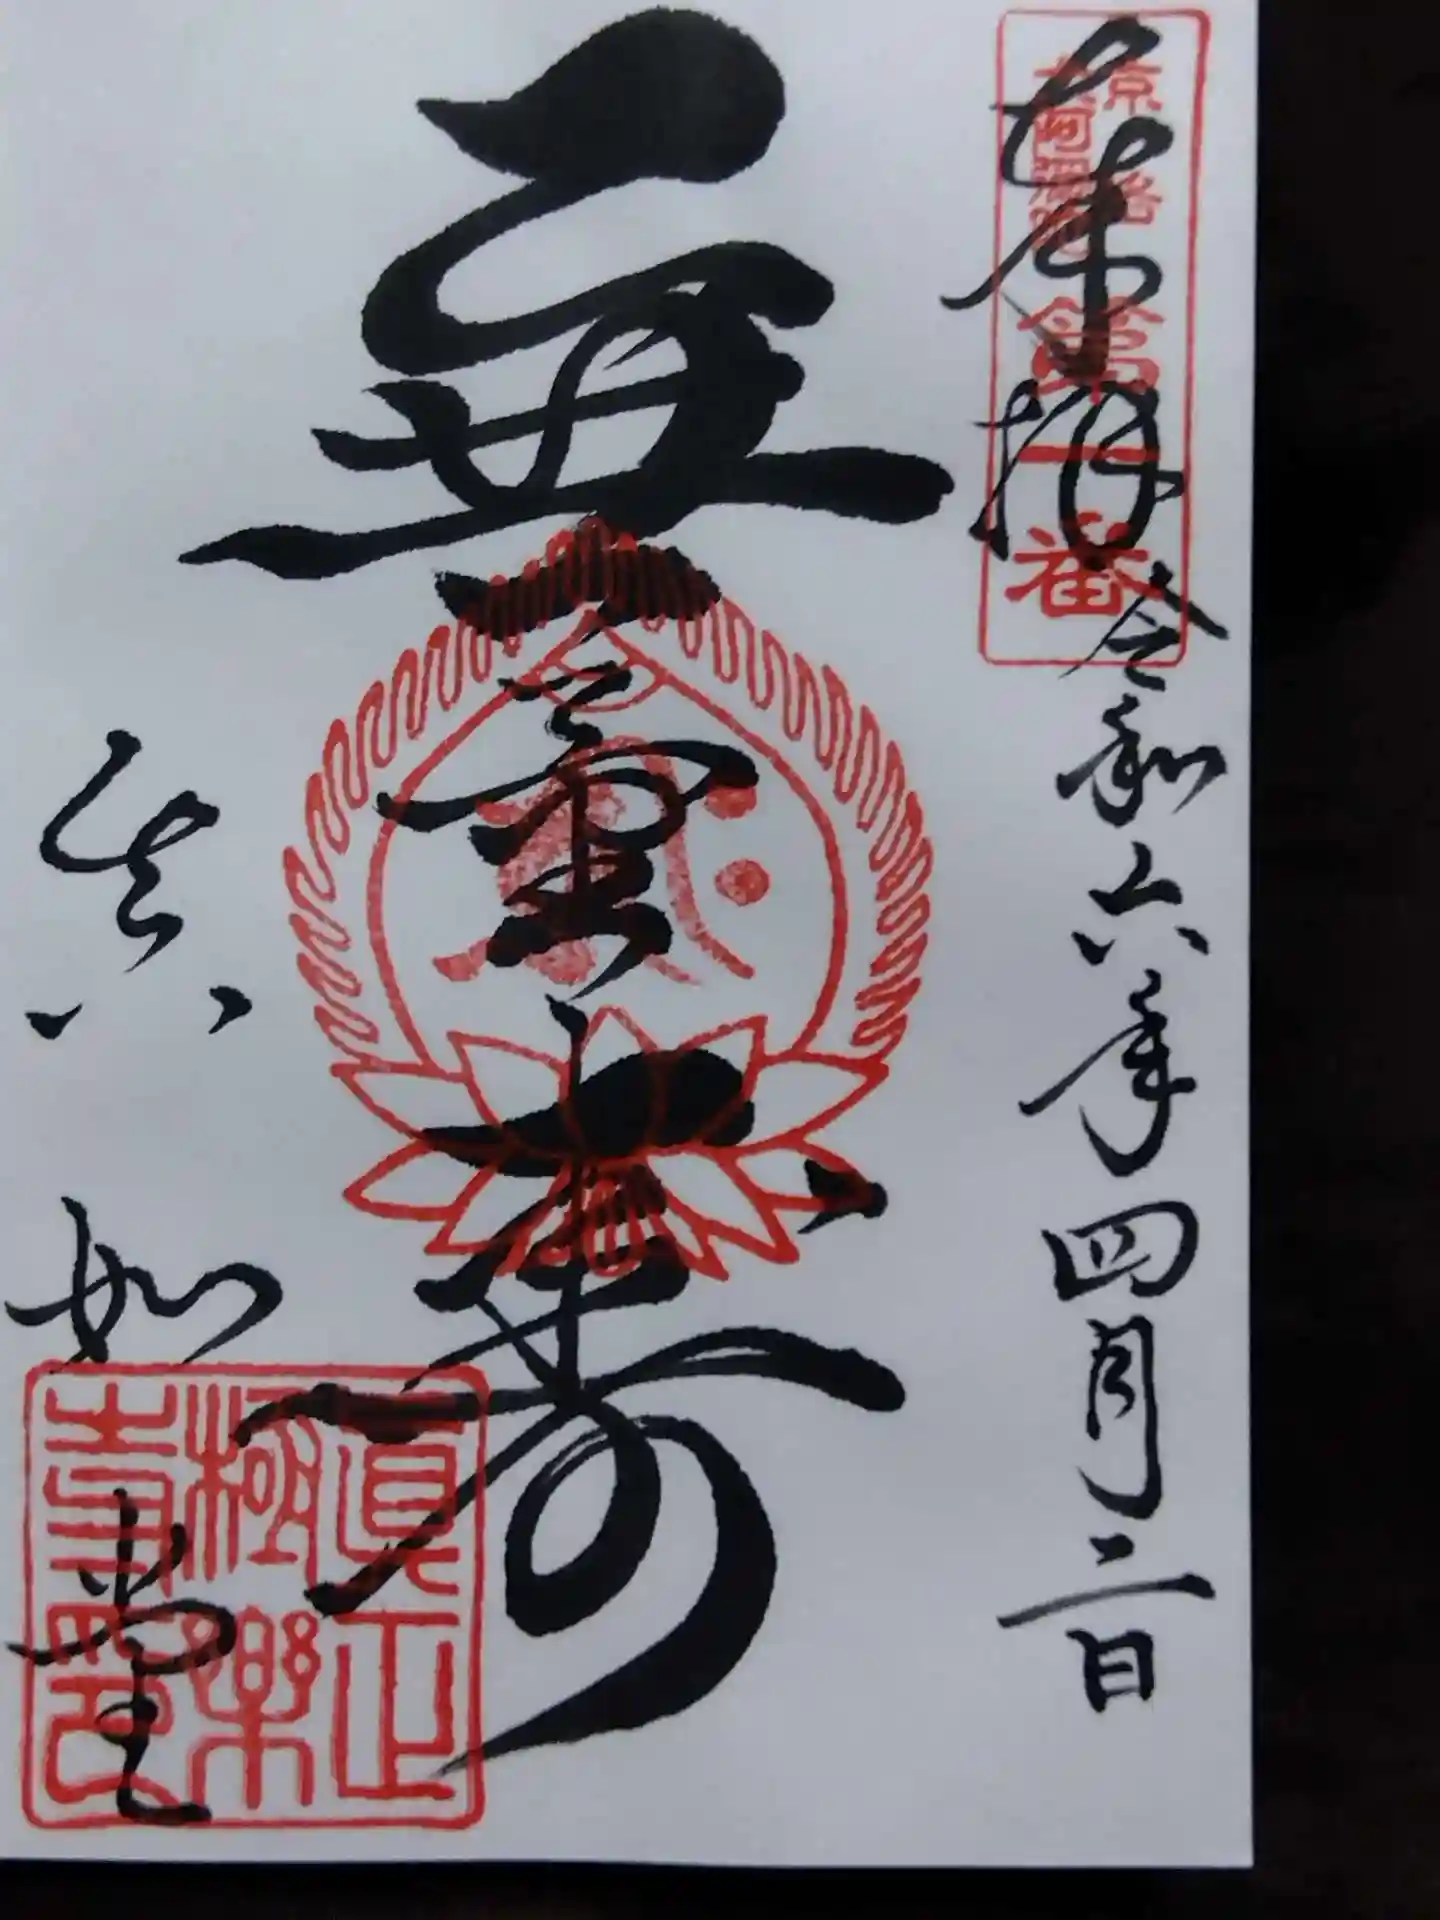 奉拝
令和六年四月二日
京洛
六阿彌陀
第一番
無量寿
真如堂
真正
極樂
寺印